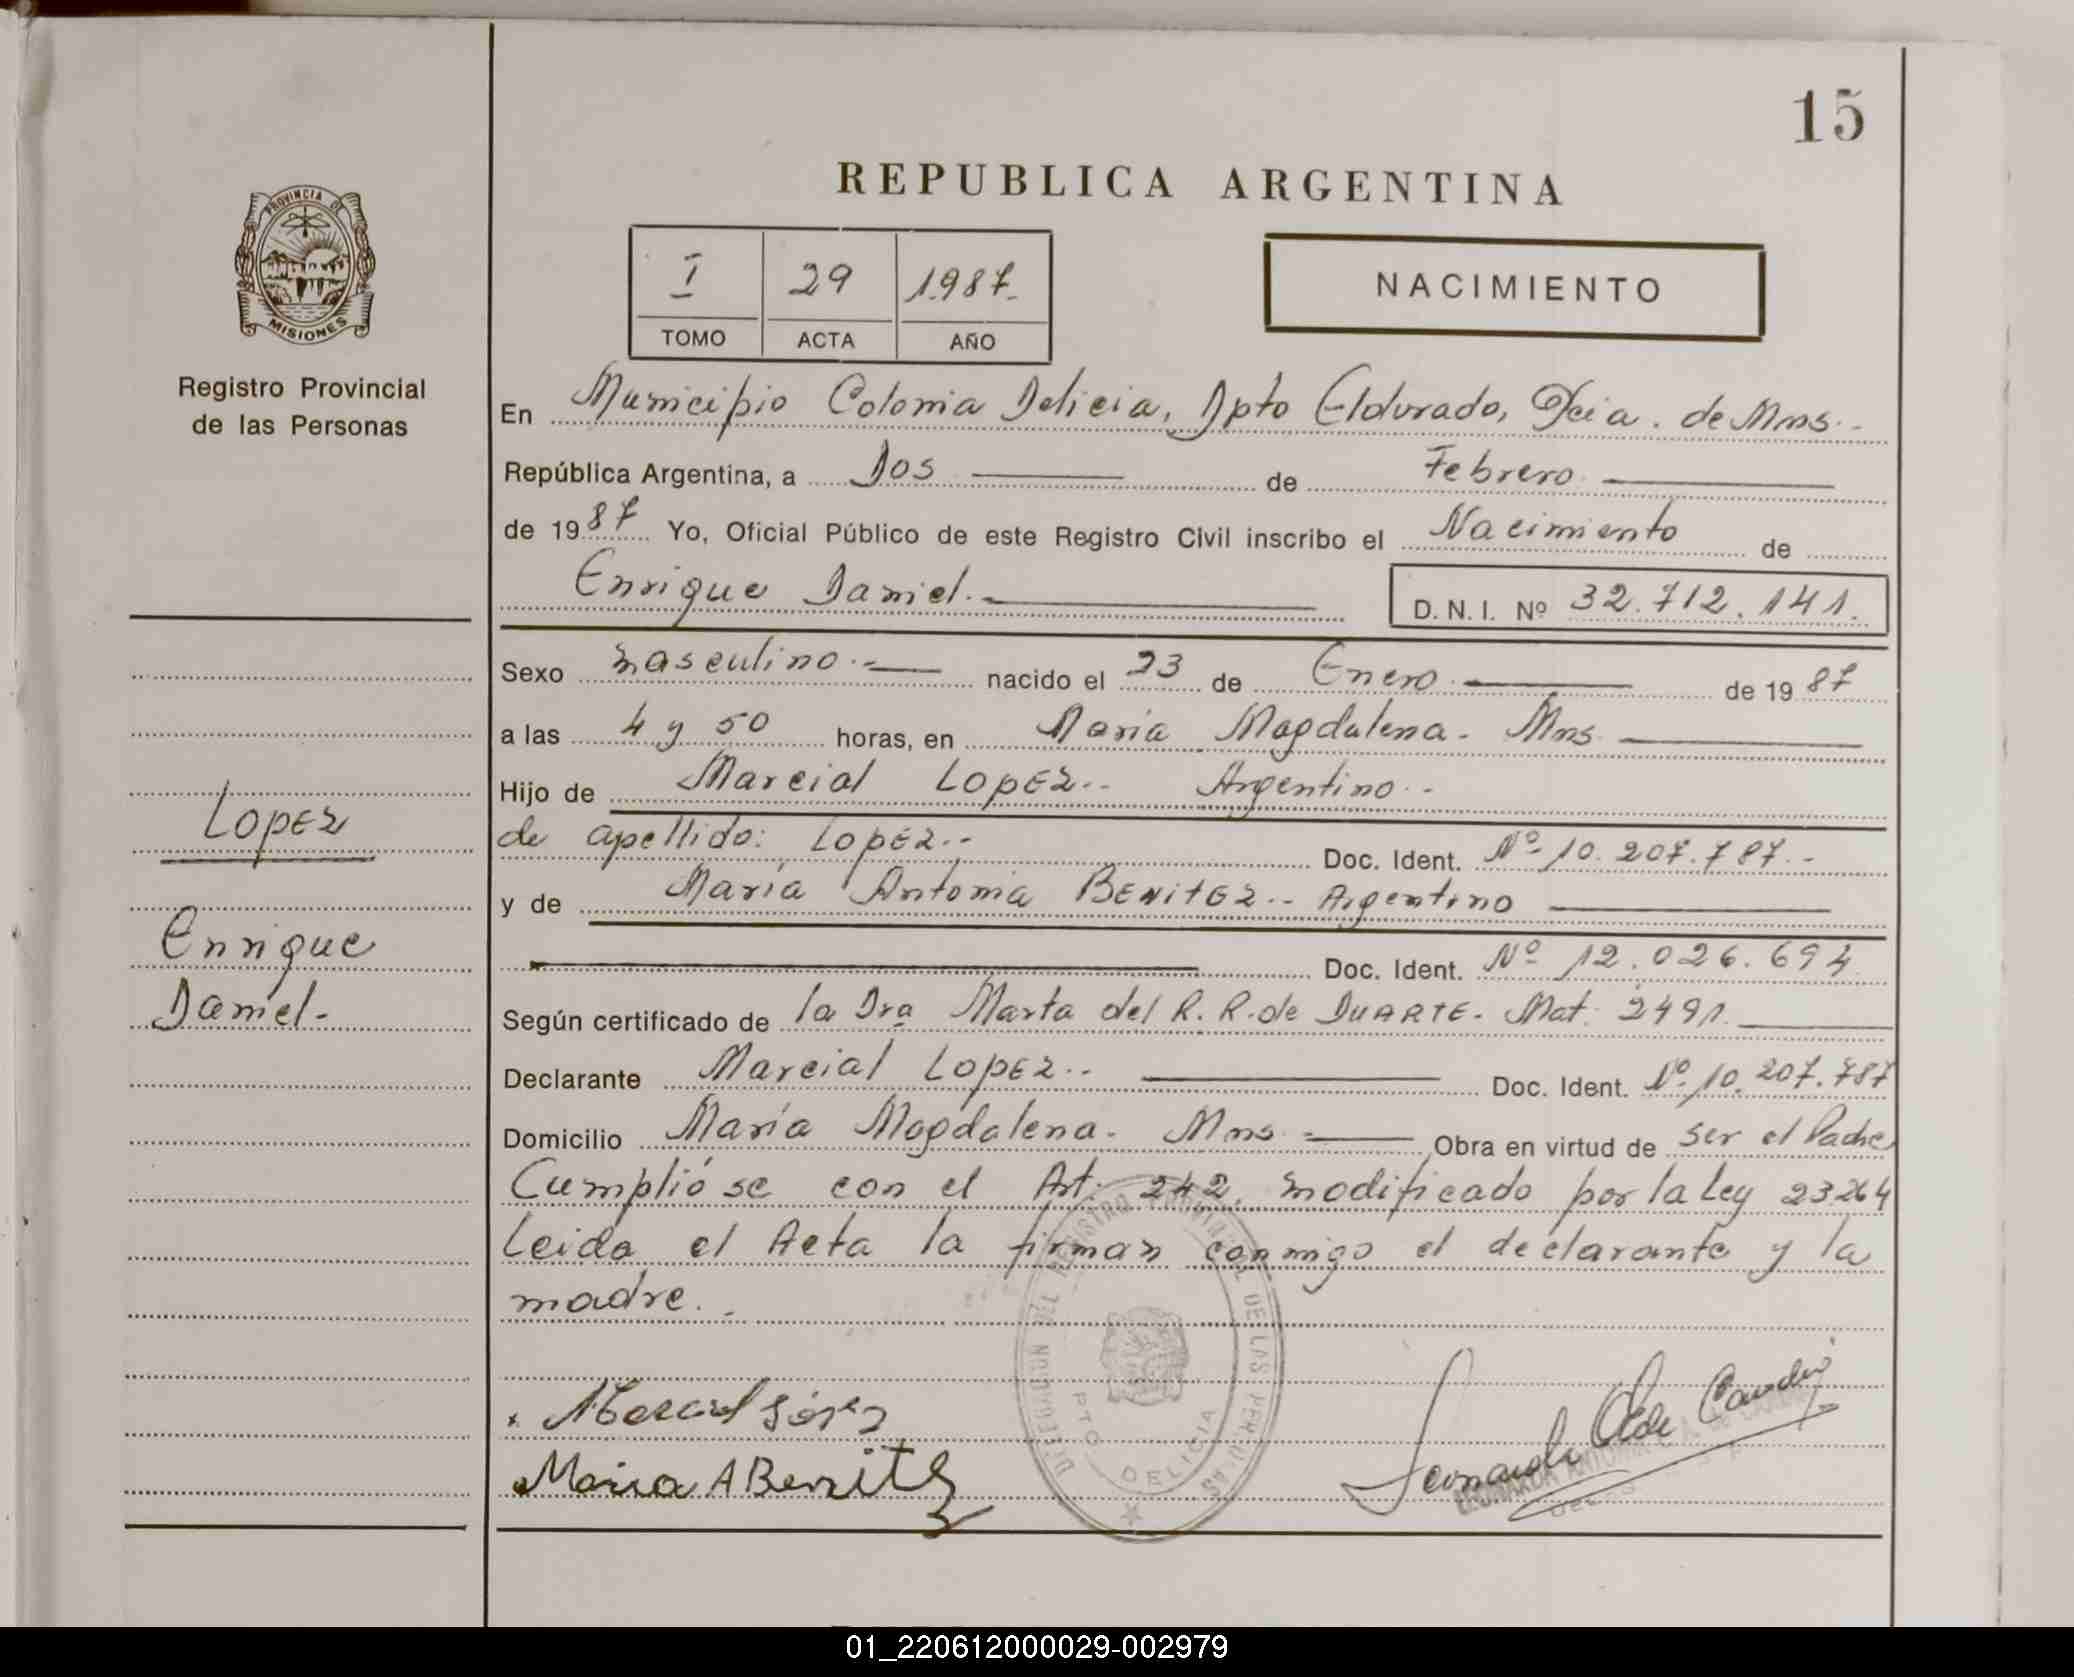 15
REPUBLICA ARGENTINA
PROVINCIA DE
MISIONES
Registro Provincial
de las Personas
I 29 1987.-
TOMO ACTA AÑO
NACIMIENTO
En Municipio Colonia Delicia, Dpto Eldorado, Pcia. de Mns.-
República Argentina, a Dos de Febrero
de 1987 Yo, Oficial Público de este Registro Civil inscribo el Nacimiento de
Enrique Daniel.- D. N. I. Nº 32.712.141.
Sexo Masculino.- nacido el 23 de Enero de 1987
a las 4 y 50 horas, en María Magdalena- Mns.
Hijo de Marcial LopEz.. Argentino.-
de apellido: LopEz.- Doc. Ident. Nº 10.207.787.-
y de María Antonia BENitEz.- Argentino
Doc. Ident. Nº 12.026.694
Según certificado de la Dra Marta del R. R. de DUARTE- Mat. 2491.
Declarante Marcial LopEz.. Doc. Ident. Nº 10.207.787
Domicilio María Magdalena- Mns.- Obra en virtud de ser el Padre
Cumplióse con el Art. 242, modificado por la Ley 23264
Leida el Acta la firman conmigo el declarante y la
madre.-
Lopez
Enrique
Daniel-
Marcial López
Maria A Benitez
REGISTRO PROVINCIAL DE LAS PERSONAS
DELICIA
01_220612000029-002979